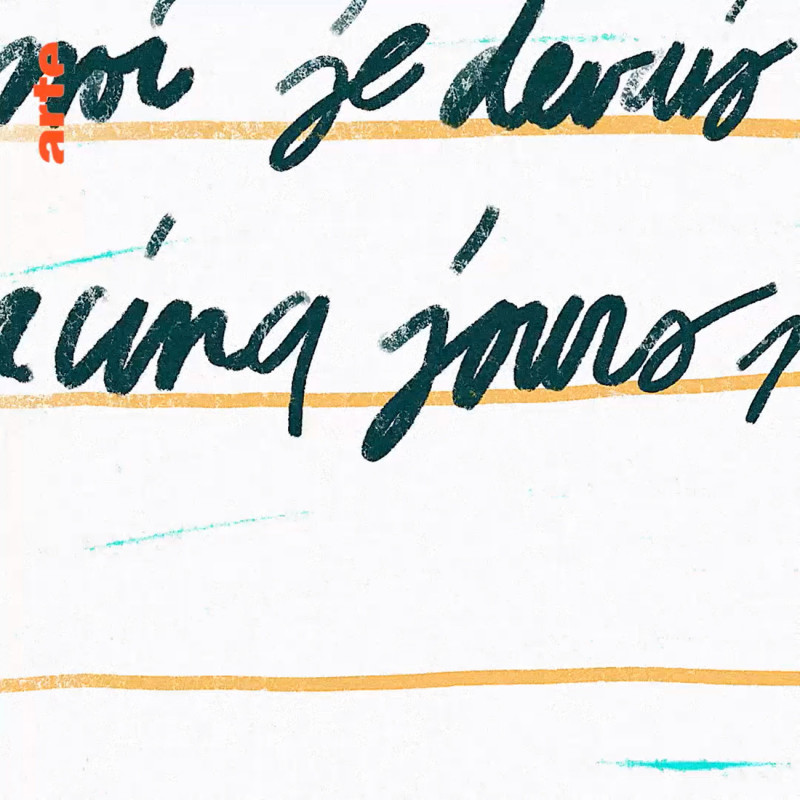 arte
moi je devais
cinq jours